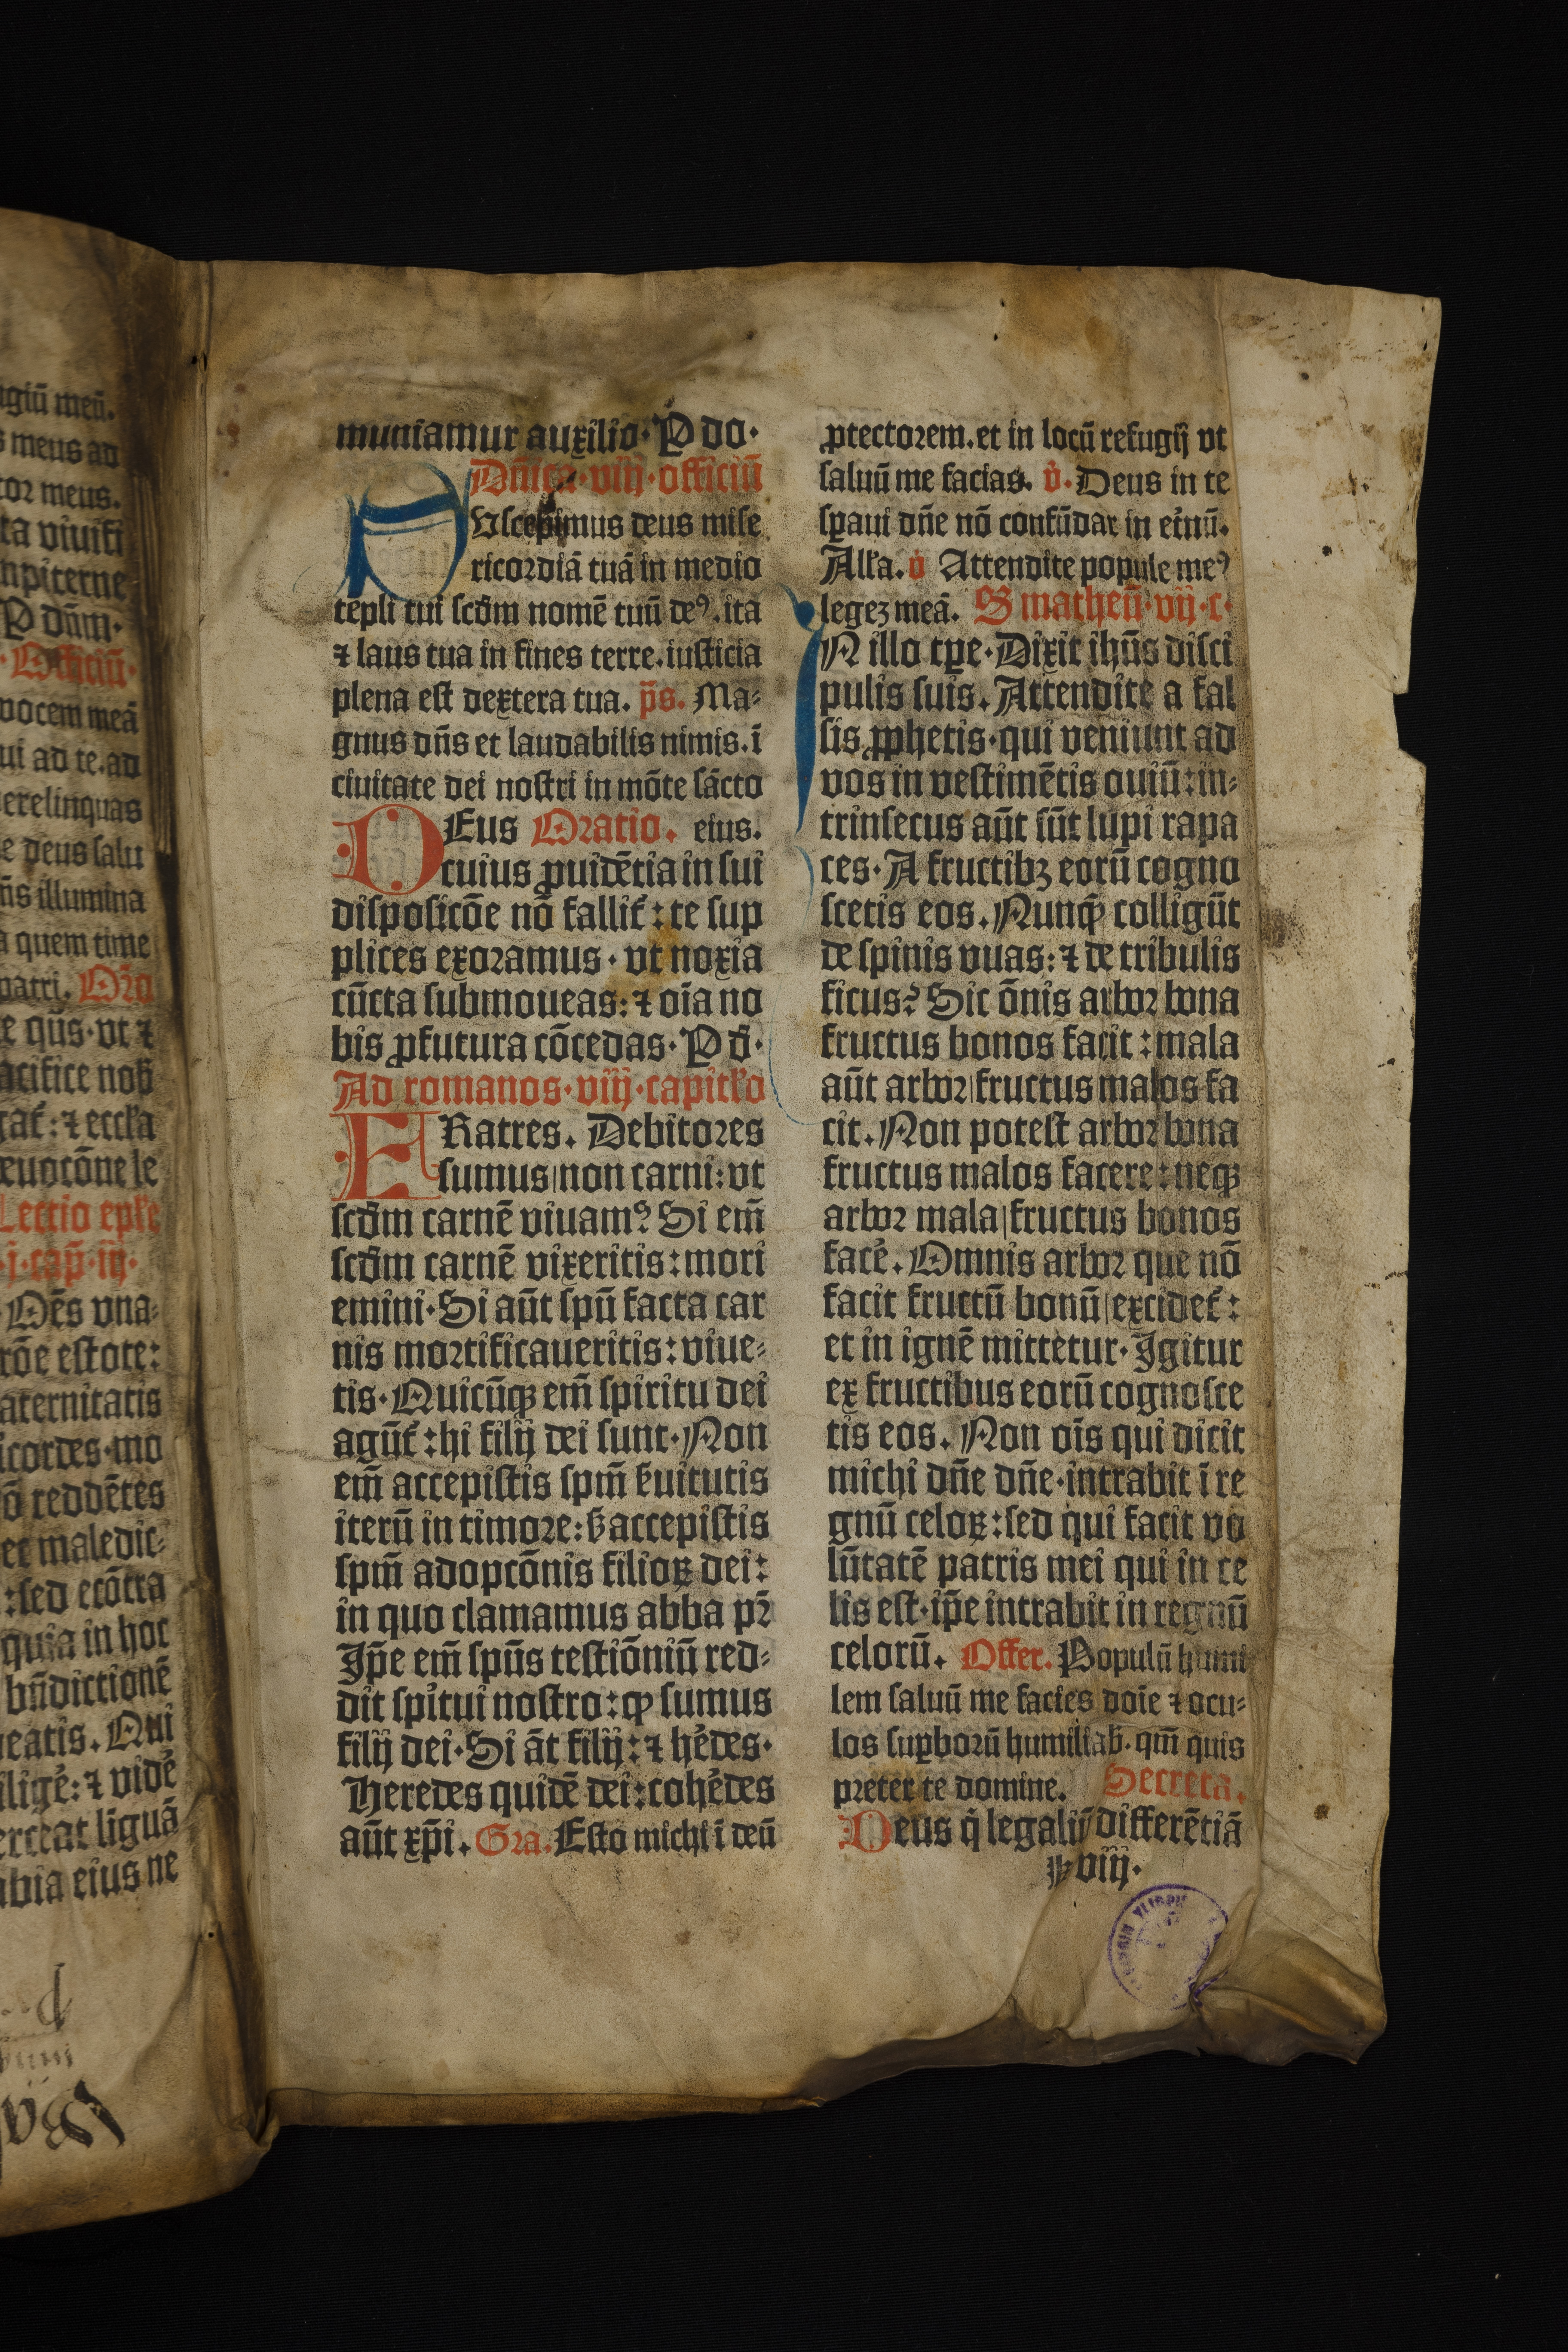 giū meū.
s meus ad
tor meus.
ta viuifi
mpiterne
P dn̄m·
·Officiū·
vocem meā
ui ad te.ad
erelinquas
e deus salu
n̄s illumina
a quem time
patri. Or̄o
e qūs·vt ⁊
acifice nob̄
gat̄:⁊ eccl̄a
euotōne le
Lectio epl̄e
·j·cap̄·iij·
Oēs vna⸗
rōe estote:
aternitatis
icordes·mo
ō reddētes
et maledic⸗
:sed ecōtra
quia in hoc
bn̄dictionē
eatis. Qui
ilige̾:⁊ vide̾
erceat liguā
abia eius ne
muniamur auxilio·P do·
Dn̄ica·viij·officiū
Vscepimus deus mise
ricordiā tuā in medio
tēpli tui scd̄m nomē tuū deꝰ.ita
⁊ laus tua in fines terre.iusticia
plena est dextera tua. p̄s. Ma⸗
gnus dn̄s et laudabilis nimis.ī
ciuitate dei nostri in mōte sācto
DEus Oratio. eius.
cuius ꝓuidētia in sui
disposicōe nō fallit̄:te sup
plices exoramus·vt noxia
cūcta submoueas:⁊ oīa no
bis ꝓfutura cōcedas·P d̄·
Ad romanos·viij·capitl̄o
FRatres. Debitores
sumus|non carni:vt
scd̄m carnē viuamꝰ Si em̄
scd̄m carnē vixeritis:mori
emini·Si aūt spū facta car
nis mortificaueritis:viue⸗
tis·Quicūqꝫ em̄ spiritu dei
agūt̄:hi filij dei sunt·Non
em̄ accepistis spm̄ s̄uitutis
iterū in timore:s̄ accepistis
spm̄ adoptōnis filioꝝ dei:
in quo clamamus abba pr̄
Ip̄e em̄ spūs testiōniū red⸗
dit sp̄itui nostro:ꝙ sumus
filij dei·Si āt filij:⁊ he̾des·
Heredes quidē dei:cohe̾des
aūt xp̄i. Gra. Esto michi ī deū
ꝓtectorem.et in locū refugij vt
saluū me facias. v̾. Deus in te
sꝑaui dn̄e nō confūdar in et̾nū.
All̄a. v̾ Attendite popule meꝰ
legeꝫ meā. S matheū·vij·c·
N illo tꝑe·Dixit ihūs disci
pulis suis. Attendite a fal
sis ꝓphetis·qui veniunt ad
vos in vestimētis ouiū:in⸗
trinsecus aūt sūt lupi rapa
ces·A fructibꝫ eorū cogno
scetis eos. Nunꝗ̄ colligūt
de spinis vuas:⁊ de tribulis
ficus? Sic ōnis arbor bona
fructus bonos facit:mala
aūt arbor|fructus malos fa
cit. Non potest arbor bona
fructus malos facere:neqꝫ
arbor mala|fructus bonos
face̾. Omnis arbor que nō
facit fructū bonū|excidet̄:
et in ignē mittetur·Igitur
ex fructibus eorū cognosce
tis eos. Non oīs qui dicit
michi dn̄e dn̄e·intrabit ī re
gnū celoꝝ:sed qui facit vo
lūtatē patris mei qui in ce
lis est·ip̄e intrabit in regnū
celorū. Offer. Populū humi
lem saluū me facies doīe ⁊ ocu⸗
los suꝑborū humiliab̄.qm̄ quis
preter te domine. Secreta.
Deus q̄ legaliū differētiā
viij·